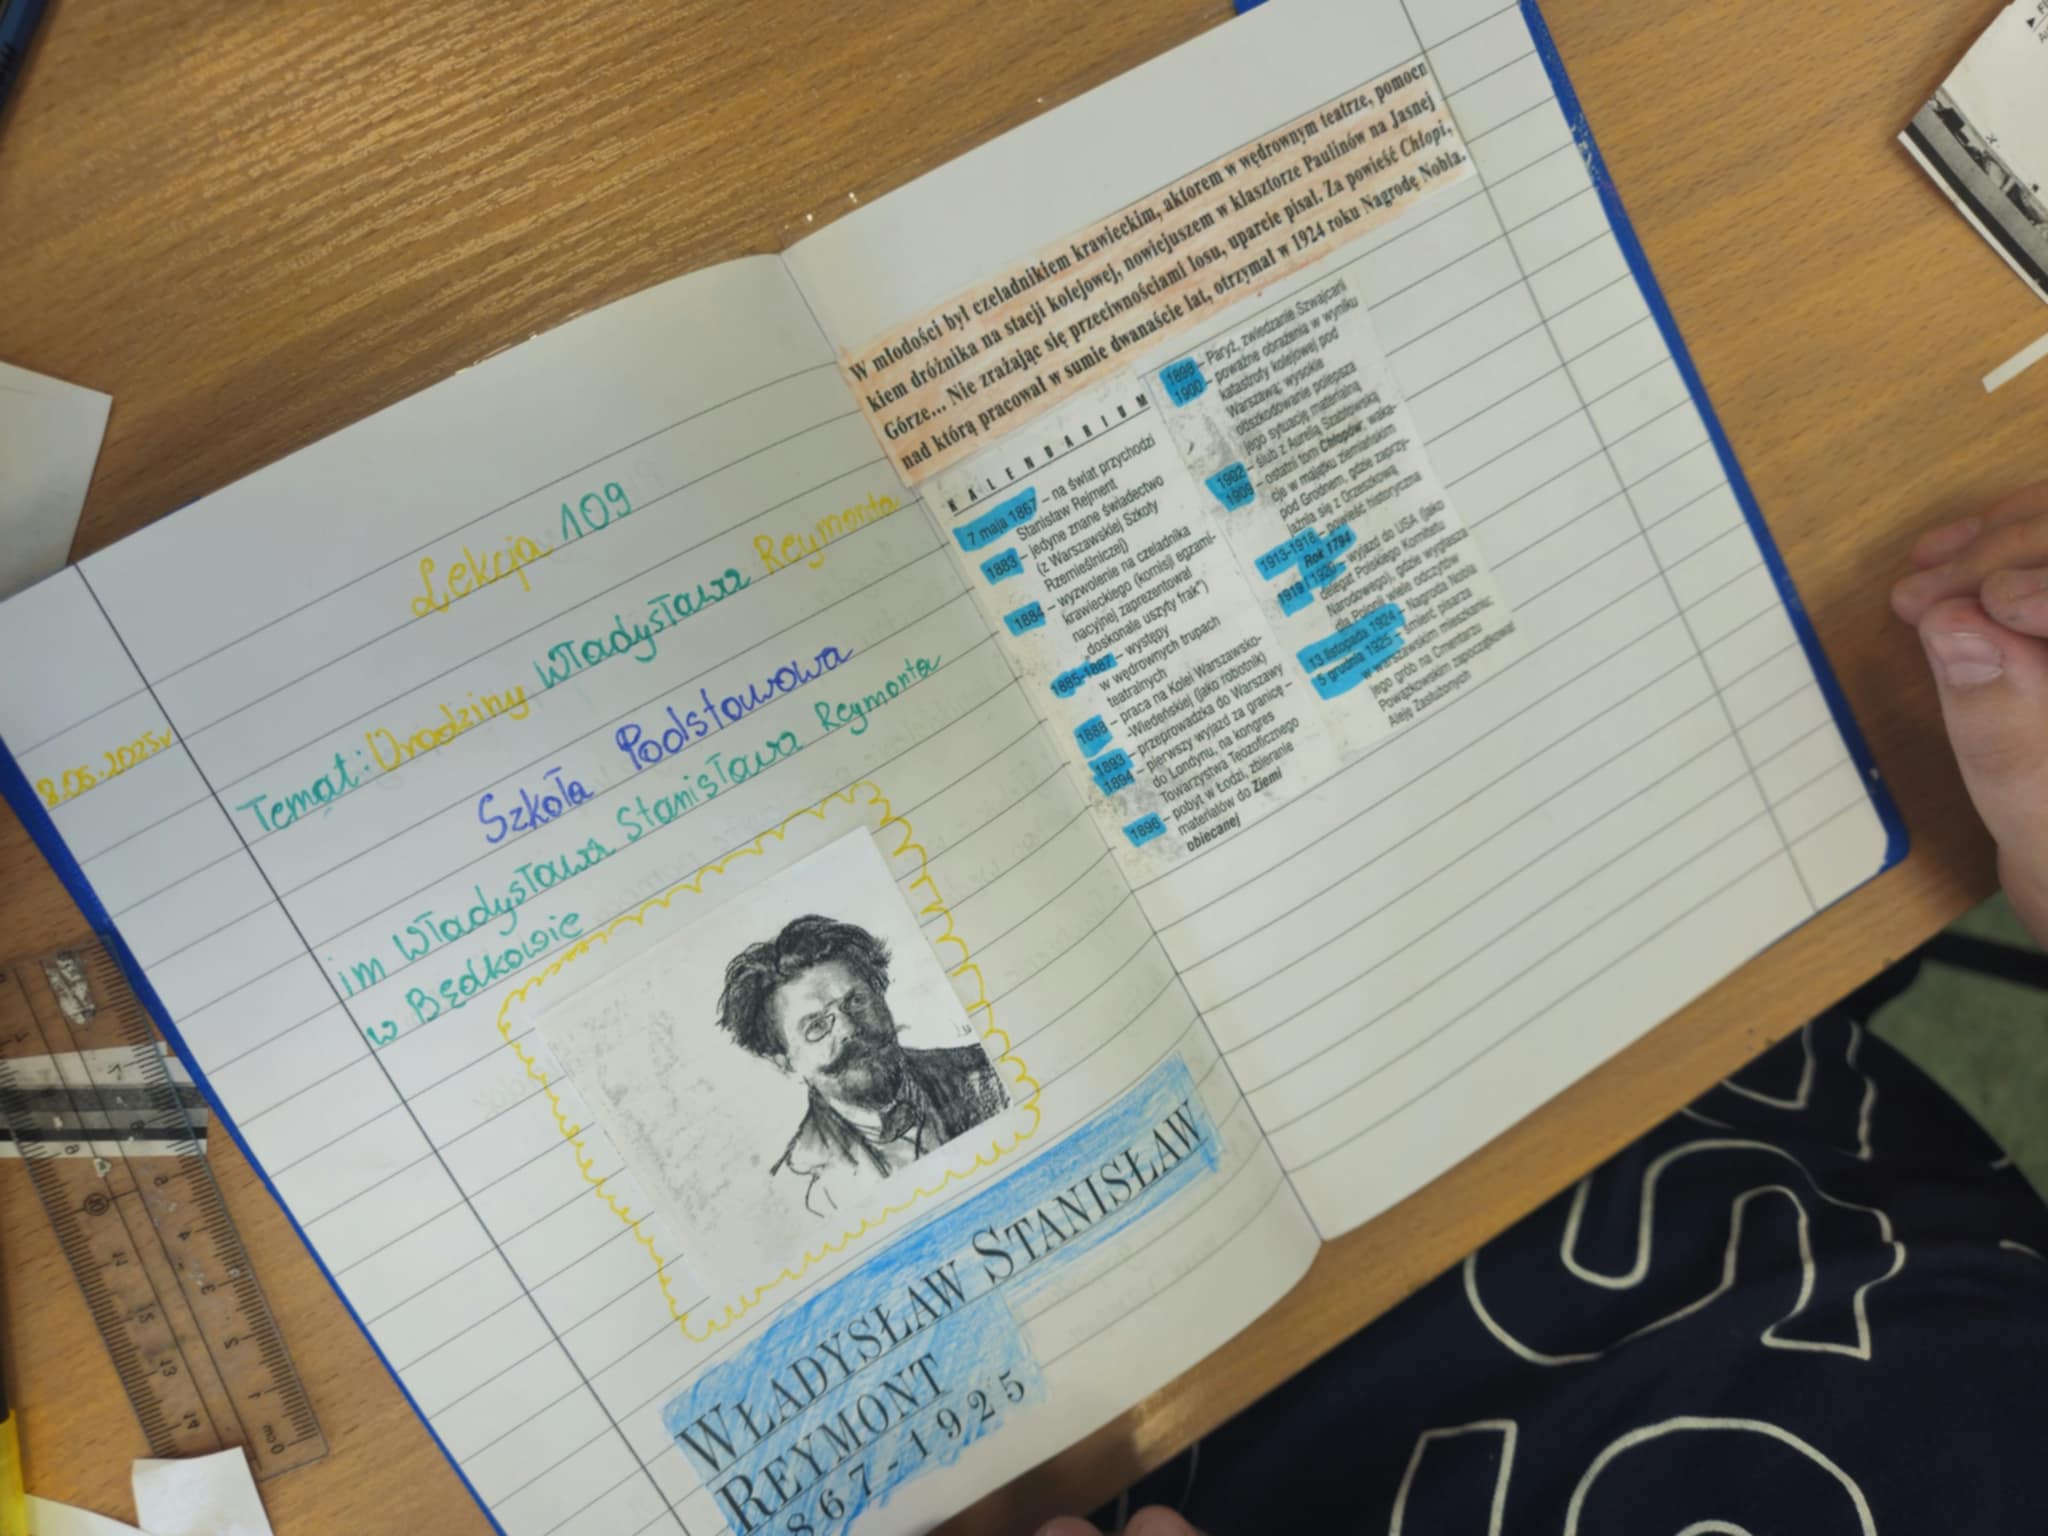 Lekcja 109
8.05.2025r
Temat: Urodziny Władysława Reymonta
Szkoła Podstawowa
im Władysława Stanisława Reymonta
w Będkowie
WŁADYSŁAW STANISŁAW
REYMONT
867-1925
W młodości był czeladnikiem krawieckim, aktorem w wędrownym teatrze, pomocn
kiem dróżnika na stacji kolejowej, nowicjuszem w klasztorze Paulinów na Jasnej
Górze... Nie zrażając się przeciwnościami losu, uparcie pisał. Za powieść Chłopi,
nad którą pracował w sumie dwanaście lat, otrzymał w 1924 roku Nagrodę Nobla.
KALENDARIUM
7 maja 1867 – na świat przychodzi
Stanisław Rejment
1883 – jedyne znane świadectwo
(z Warszawskiej Szkoły
Rzemieślniczej)
1884 – wyzwolenie na czeladnika
krawieckiego (komisji egzami-
nacyjnej zaprezentował
„doskonale uszyty frak")
1885-1887 – występy
w wędrownych trupach
teatralnych
1888 – praca na Kolei Warszawsko-
-Wiedeńskiej (jako robotnik)
1893 – przeprowadzka do Warszawy
1894 – pierwszy wyjazd za granicę –
do Londynu, na kongres
Towarzystwa Teozoficznego
1896 – pobyt w Łodzi, zbieranie
materiałów do Ziemi
obiecanej
1898 – Paryż, zwiedzanie Szwajcarii
1900 – poważne obrażenia w wyniku
katastrofy kolejowej pod
Warszawą; wysokie
odszkodowanie polepsza
jego sytuację materialną
1902 – ślub z Aurelią Szabłowską
1909 – ostatni tom Chłopów; waka-
cje w majątku ziemiańskim
pod Grodnem, gdzie zaprzy-
jaźnia się z Orzeszkową
1913-1918 – powieść historyczna
Rok 1794
1919 i 1920 – wyjazd do USA (jako
delegat Polskiego Komitetu
Narodowego), gdzie wygłasza
dla Polonii wiele odczytów
13 listopada 1924 – Nagroda Nobla
5 grudnia 1925 – śmierć pisarza
w warszawskim mieszkaniu;
jego grób na Cmentarzu
Powązkowskim zapoczątkował
Aleję Zasłużonych